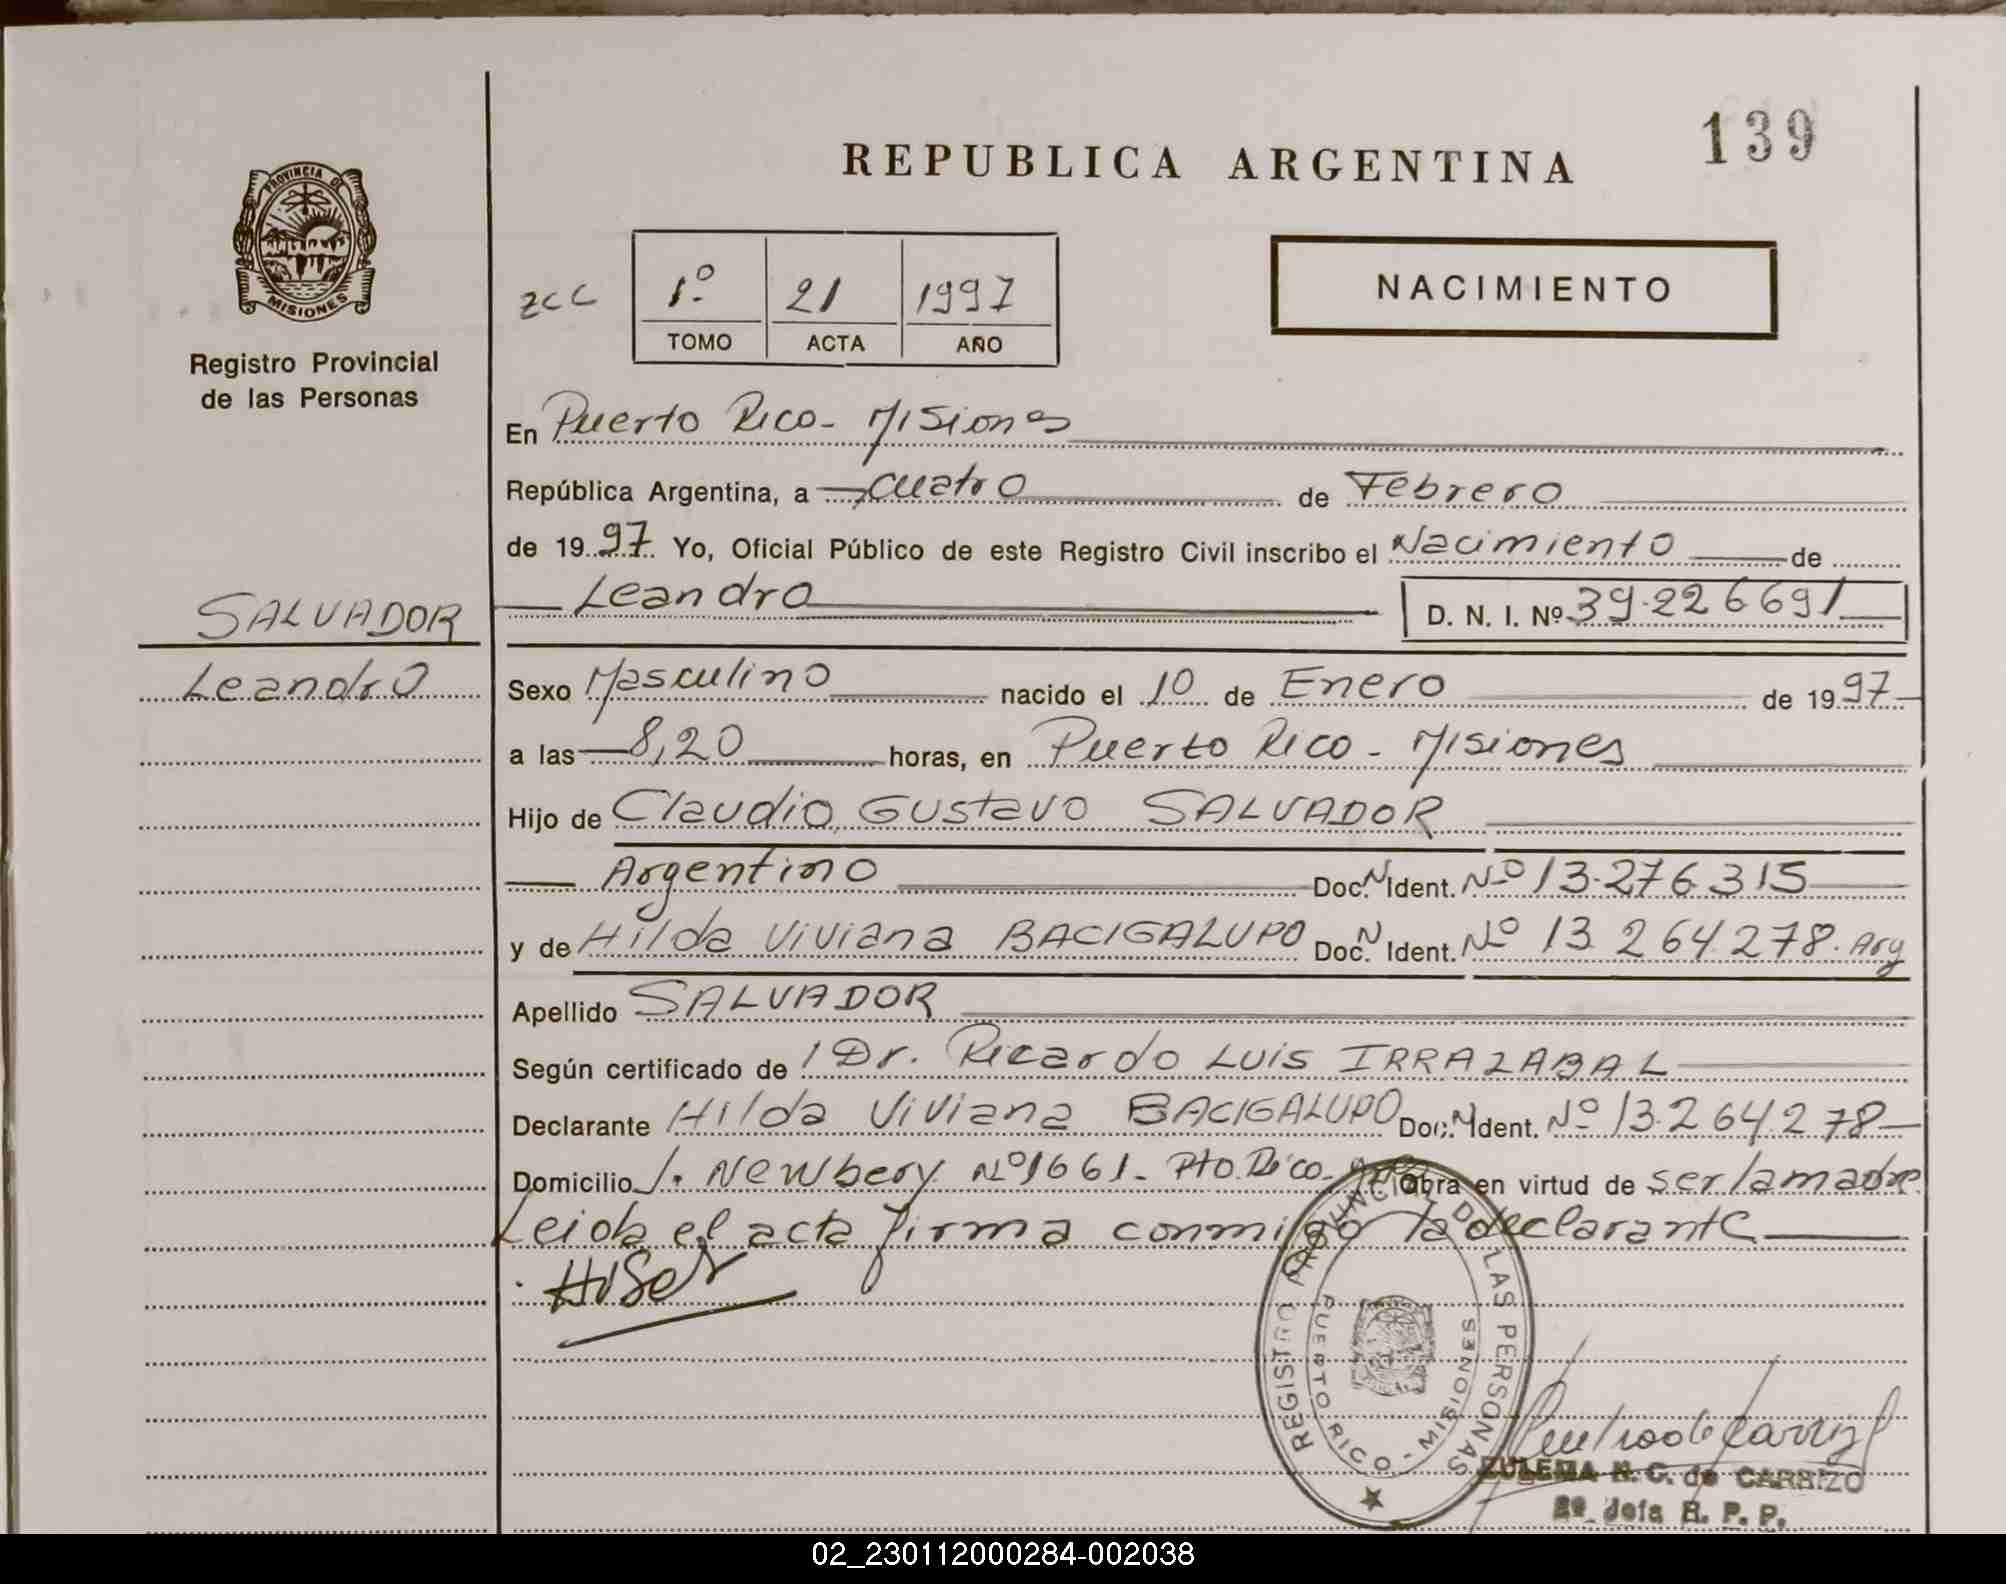 139
REPUBLICA ARGENTINA
PROVINCIA DE
MISIONES
Registro Provincial
de las Personas
zcc
1º 21 1997
TOMO ACTA AÑO
NACIMIENTO
En Puerto Rico - Misiones
República Argentina, a cuatro de Febrero
de 1997 Yo, Oficial Público de este Registro Civil inscribo el Nacimiento de
SALVADOR
Leandro
Leandro D. N. I. Nº 39.226691
Sexo Masculino nacido el 10 de Enero de 1997
a las 8,20 horas, en Puerto Rico - Misiones
Hijo de Claudio Gustavo SALVADOR
Argentino Doc. N Ident. Nº 13.276.315
y de Hilda Viviana BACIGALUPO Doc. N Ident. Nº 13.264.278. Arg
Apellido SALVADOR
Según certificado de / Dr. Ricardo Luis IRRAZABAL
Declarante Hilda Viviana BACIGALUPO Doc. N Ident. Nº 13.264.278
Domicilio J. Newbery Nº 1661 - Pto. Rico - Obra en virtud de ser la madre.
Leida el acta firma conmigo la declarante
REGISTRO PROVINCIAL DE LAS PERSONAS
PUERTO RICO - MISIONES
ZULEMA N. G. de CARRIZO
2º Jefa R. P. P.
02_230112000284-002038